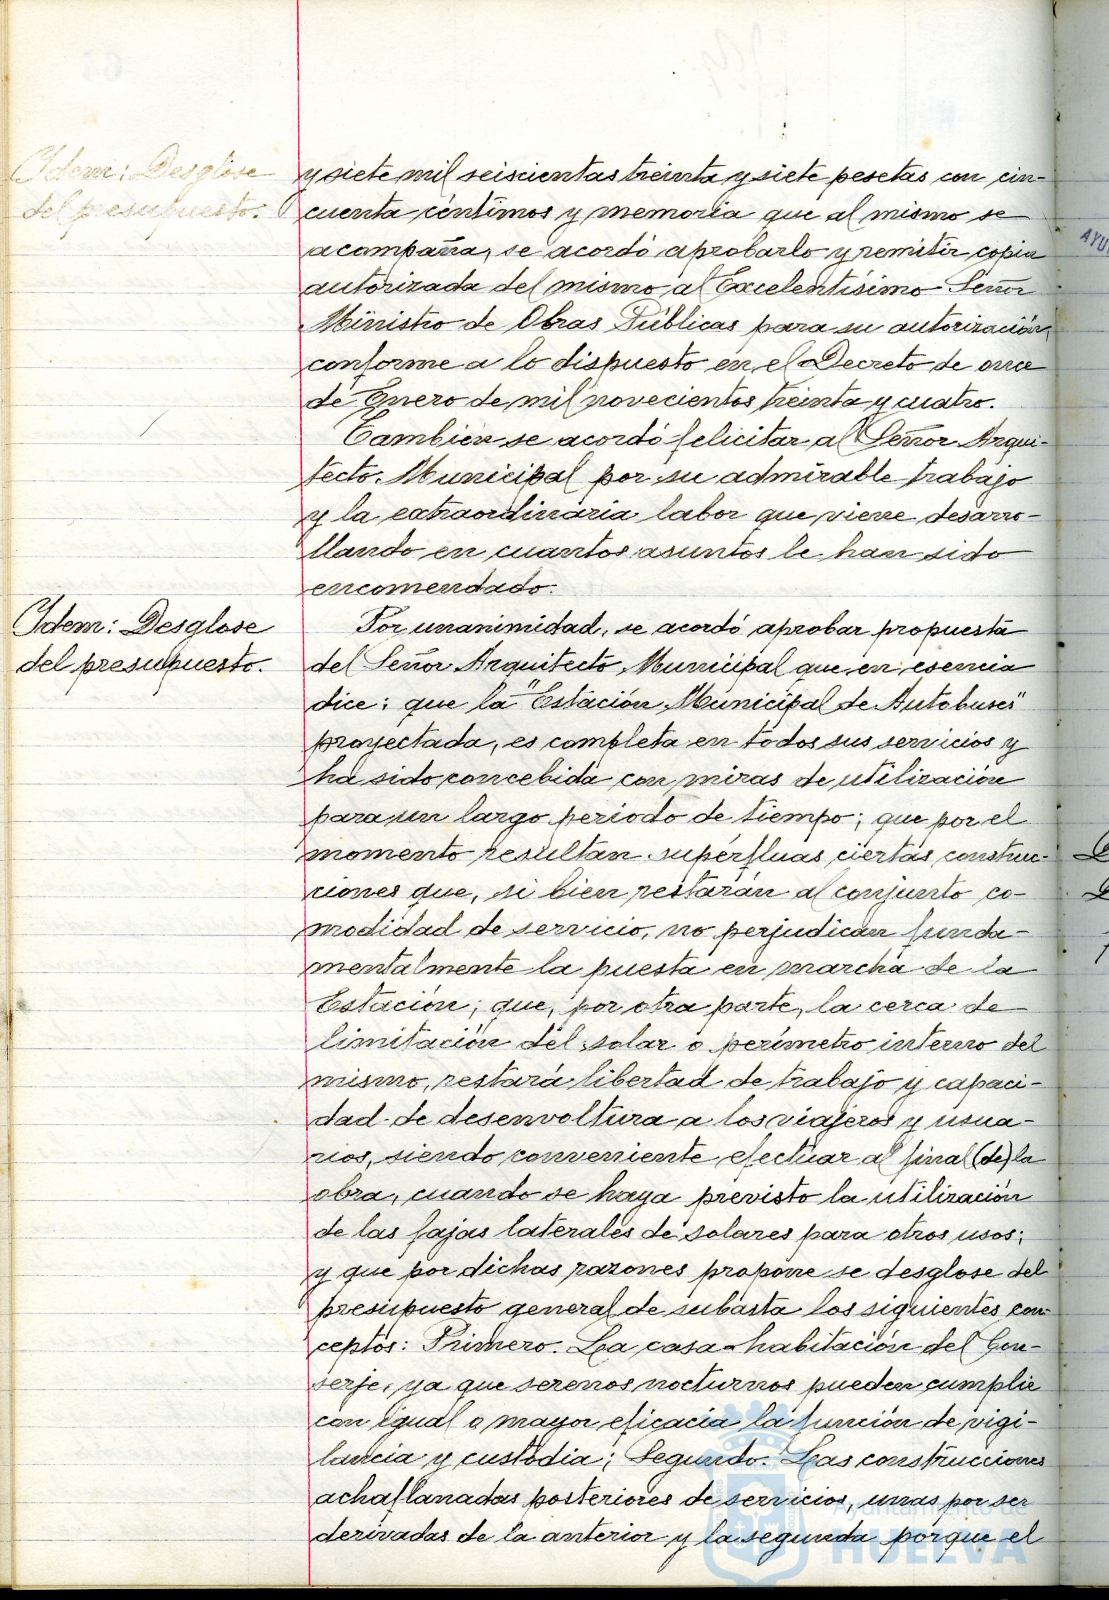 Idem: Desglose
del presupuesto.
y siete mil seiscientas treinta y siete pesetas con cin-
cuenta céntimos y memoria que al mismo se
acompaña, se acordó aprobarlo y remitir copia
autorizada del mismo al Excelentísimo Señor
Ministro de Obras Públicas para su autorización,
conforme a lo dispuesto en el Decreto de once
de Enero de mil novecientos treinta y cuatro.
También se acordó felicitar al Señor Arqui-
tecto Municipal por su admirable trabajo
y la extraordinária labor que viene desarro-
llando en cuantos asuntos le han sido
encomendado.
Idem: Desglose
del presupuesto.
Por unanimidad, se acordó aprobar propuesta
del Señor Arquitecto Municipal que en esencia
dice: que la "Estación Municipal de Autobuses"
proyectada, es completa en todos sus servicios y
ha sido concebida con miras de utilización
para un largo período de tiempo; que por el
momento resultan supérfluas ciertas construc-
ciones que, si bien restarán al conjunto co-
modidad de servicio, no perjudican funda-
mentalmente la puesta en marcha de la
Estación; que, por otra parte, la cerca de
limitación del solar o perímetro interno del
mismo, restará libertad de trabajo y capaci-
dad de desenvoltura a los viajeros y usua-
rios, siendo conveniente efectuar al final (de) la
obra, cuando se haya previsto la utilización
de las fajas laterales de solares para otros usos;
y que por dichas razones propone se desglose del
presupuesto general de subasta los siguientes con-
ceptos: Primero. La casa-habitación del Con-
serje, ya que serenos nocturnos pueden cumplir
con igual o mayor eficacia la función de vigi-
lancia y custodia; Segundo. Las construcciones
achaflanadas posteriores de servicios, unas por ser
derivadas de la anterior y la segunda porque el
Ayuntamiento de
HUELVA